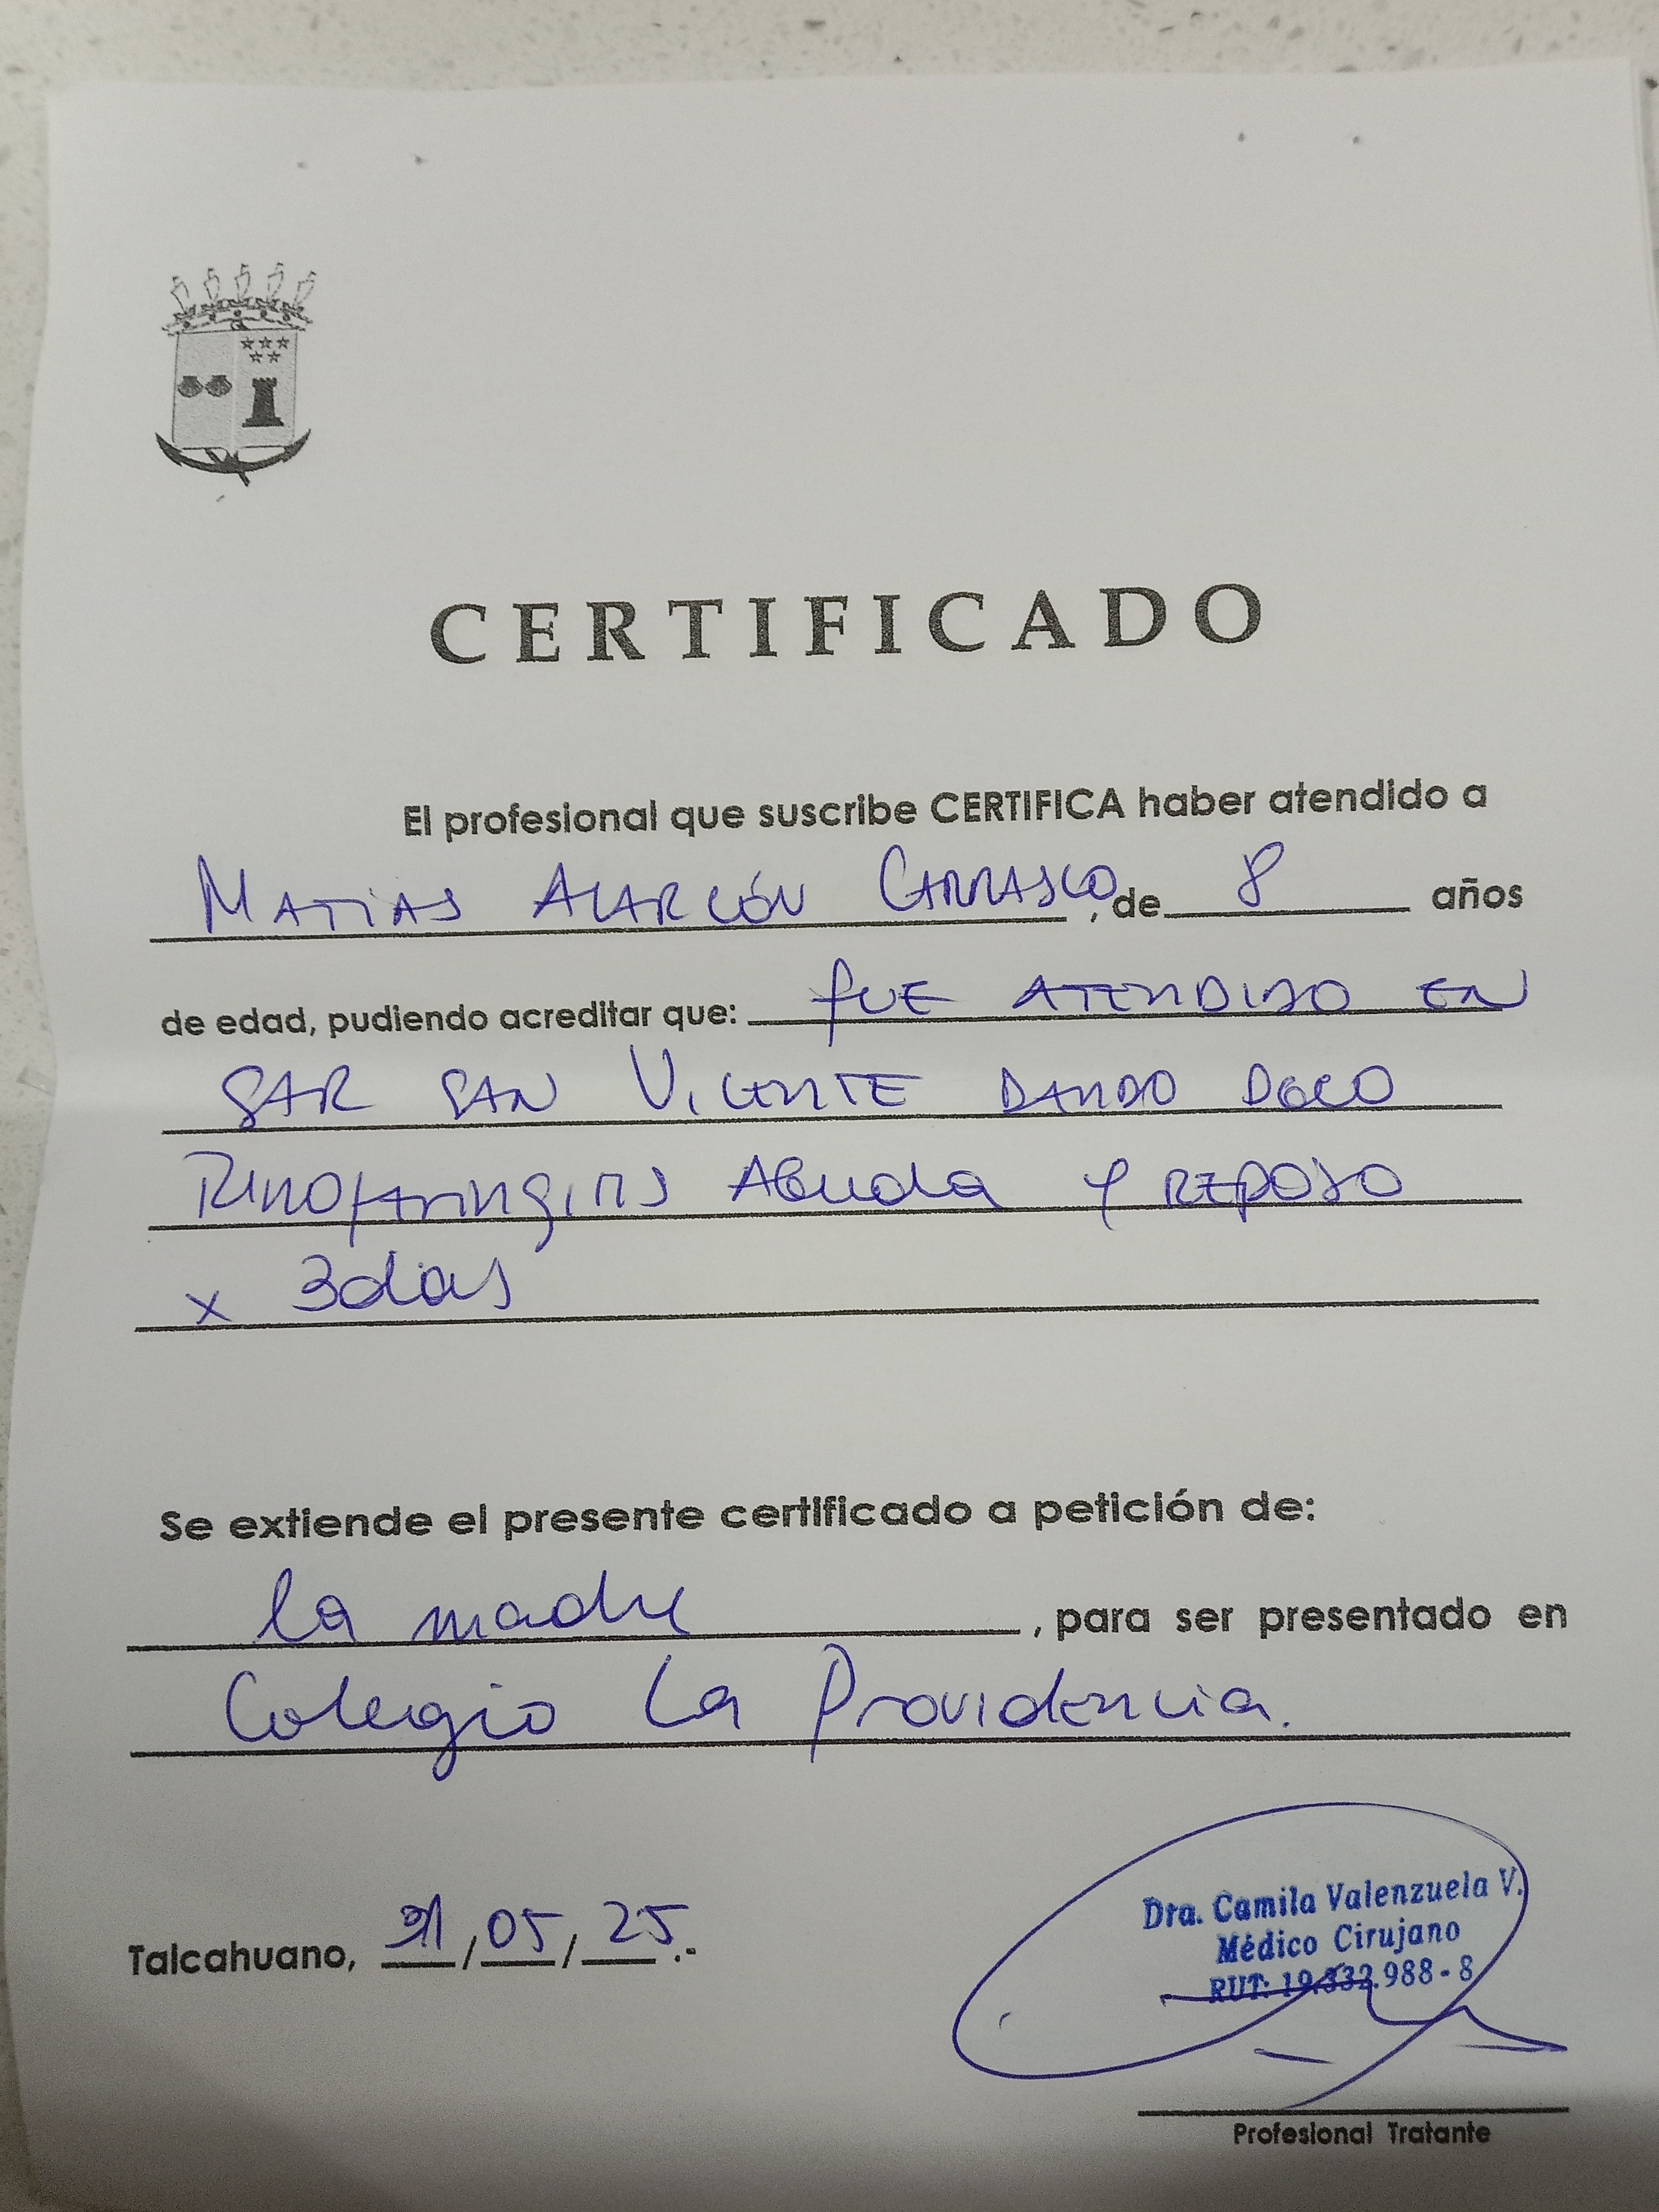 CERTIFICADO
El profesional que suscribe CERTIFICA haber atendido a
MATIAS ALARCÓN CARRASCO, de 8 años
de edad, pudiendo acreditar que: fUE ATENDIDO EN
SAR SAN VICENTE DANDO DGCO
RINOfaringitis AGuda Y REPOSO
x 3 dias
Se extiende el presente certificado a petición de:
la madre, para ser presentado en
Colegio La Providencia.
Talcahuano, /05/25.-
Dra. Camila Valenzuela V.
Médico Cirujano
RUT: 19.332.988-8
Profesional Tratante